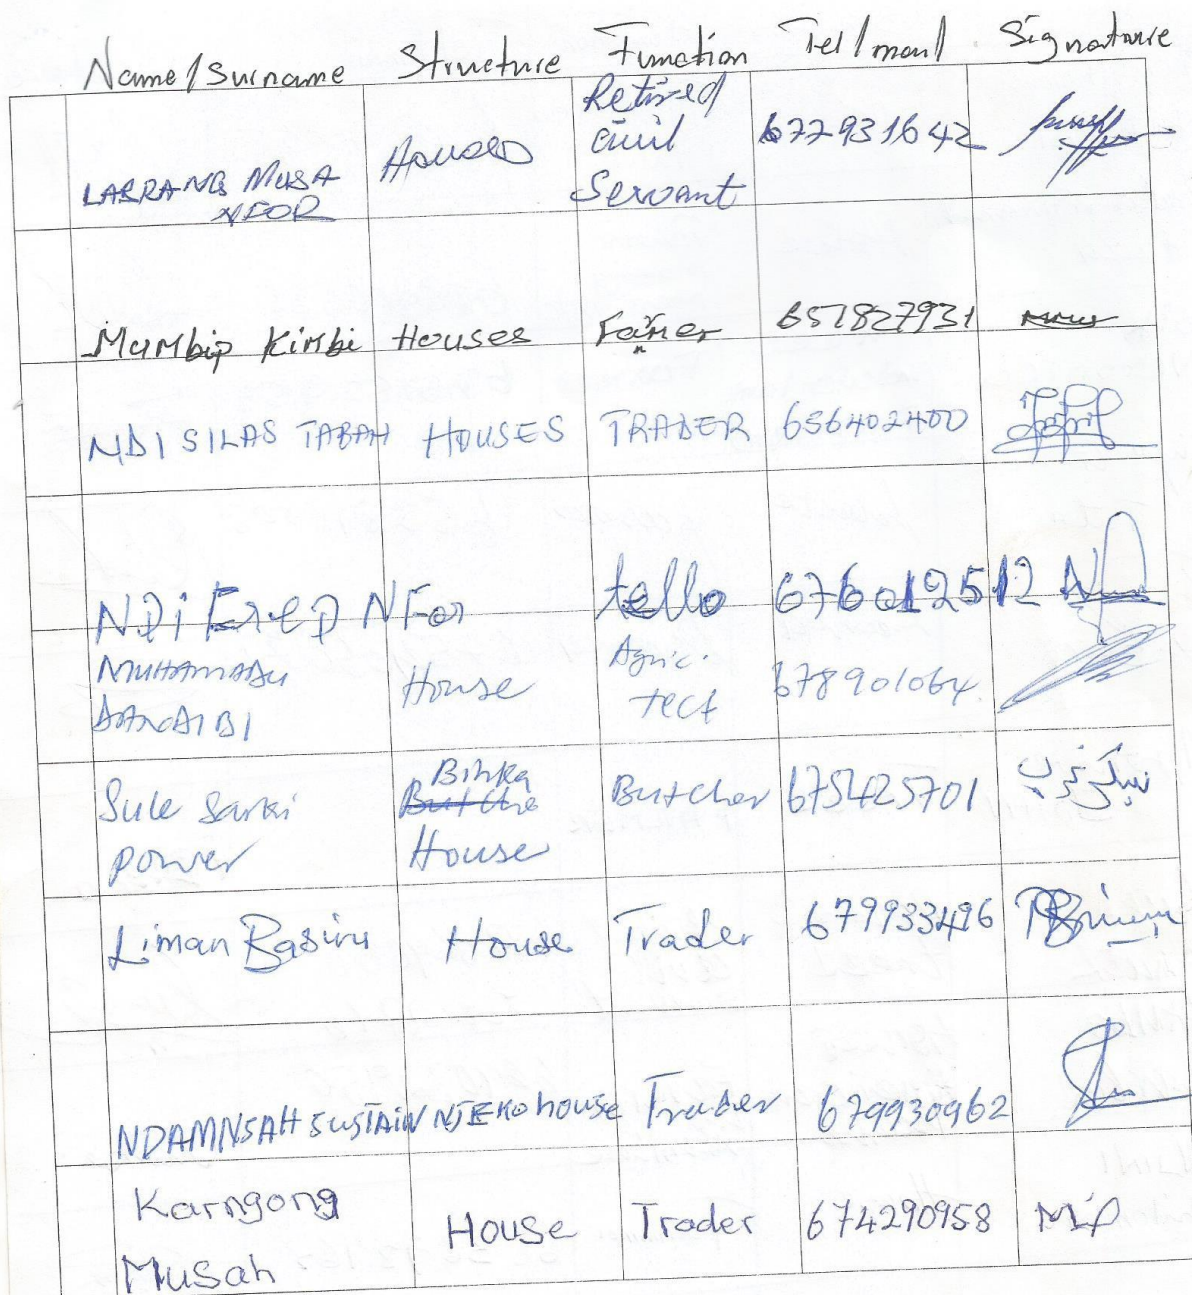 Name/Surname Structure Function Tel/mail Signature
LABRANG MUSA NFOR Houses Retired Civil Servant 677931642
Mumbip Kimbi Houses Farmer 651827931
NDI SILAS TABAH HOUSES TRADER 656402400
NDi Fred NFor tello 676012512
MUHAMADU DANDAIBI House Agric. tect 678901064.
Sule Sarki power Binka House Butcher 675425701
Liman Basiru House Trader 679933496
NDAMNSAH SUSTAIN NJEKO house Trader 679930962
Karngong Musah House Trader 674290958 MiP